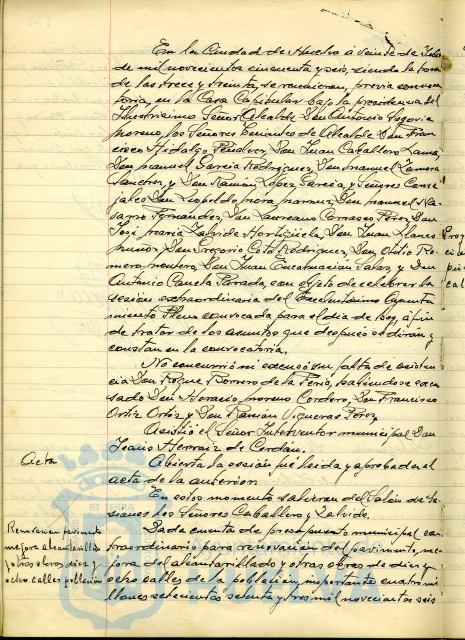 En la Ciudad de Huelva á veinte de
de mil novecientos cincuenta y seis, siendo la hora
de las trece y treinta se reunieron, previa convoca
toria, en la Casa Capitular bajo la presidencia del
Ilustrísimo Señor Alcalde Don Antonio Segovia
Moreno, los Señores Tenientes de Alcalde Don Fran
cisco Hidalgo Peñalver, Don Juan Caballero Lama,
Don Manuel García Rodríguez, Don Manuel Zamora
Sanchez, y Don Ramón López García, y Señores Conce
jales Don Leopoldo Mora Don Manuel Na
varro Fernández, Don Laureano Carrasco Pérez, Don
José María Zalvide Don Juan Llanes
Muñoz, Don Gregorio Coto Rodríguez, Don Otilio Ro
mero Montero, Don Juan Encarnación Salas, y Don
Antonio Canela Parrado, con objeto de celebrar la
sesión extraordinaria del Excelentísimo Ayunta
miento Pleno convocada para el día de hoy, á fin
de tratar de los asuntos que después se dirán y
constan en la convocatoria.
No concurrió ni excusó su falta de asisten
cia Don Roque Borrero de la Feria, habiéndose excu
sado Don Horacio Moreno Cordero, Don Francisco
Ortiz Ortiz y Don Ramón Vigueras Pérez.
Asistió el Señor Interventor municipal Don
Jesús Herraiz de Cerdán.
Acta
Abierta la sesión fué leida y aprobada el
acta de la anterior.
En estos momentos salieron del Salón de Se
siones los Señores Caballero y Zalvide.
Renovación pavimento
mejora alcantarillado
y otras obras, diez y
ocho calles población
Dada cuenta de presupuesto municipal ex
traordinario para renovación del pavimento, me
jora del alcantarillado y otras obras de diez y
ocho calles de la población, importante cuatro mi
llones setecientos setenta y tres mil novecientos seis